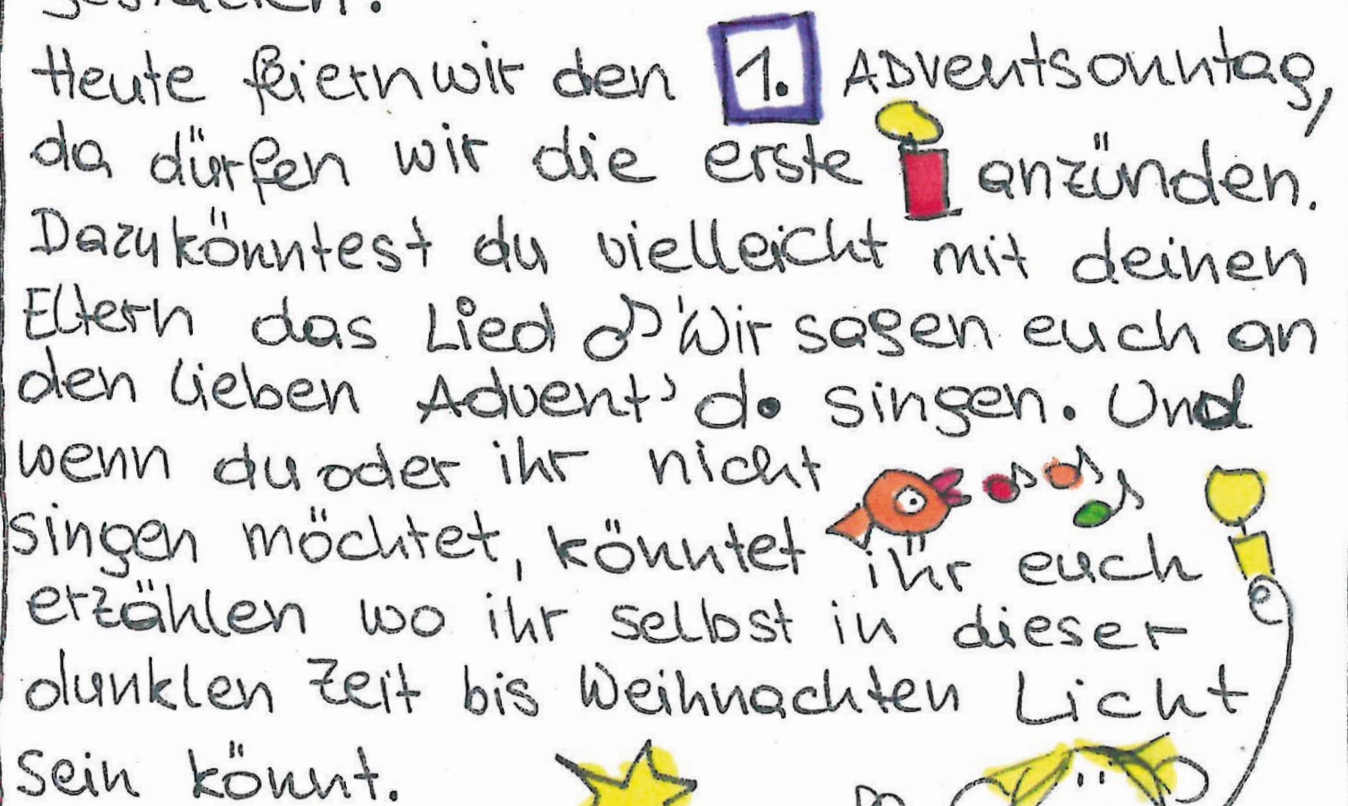 Heute feiern wir den 1. Adventsonntag,
da dürfen wir die erste anzünden.
Dazu könntest du vielleicht mit deinen
Eltern das Lied 'Wir sagen euch an
den lieben Advent' singen. Und
wenn du oder ihr nicht
singen möchtet, könntet ihr euch
erzählen wo ihr selbst in dieser
dunklen Zeit bis Weihnachten Licht
sein könnt.